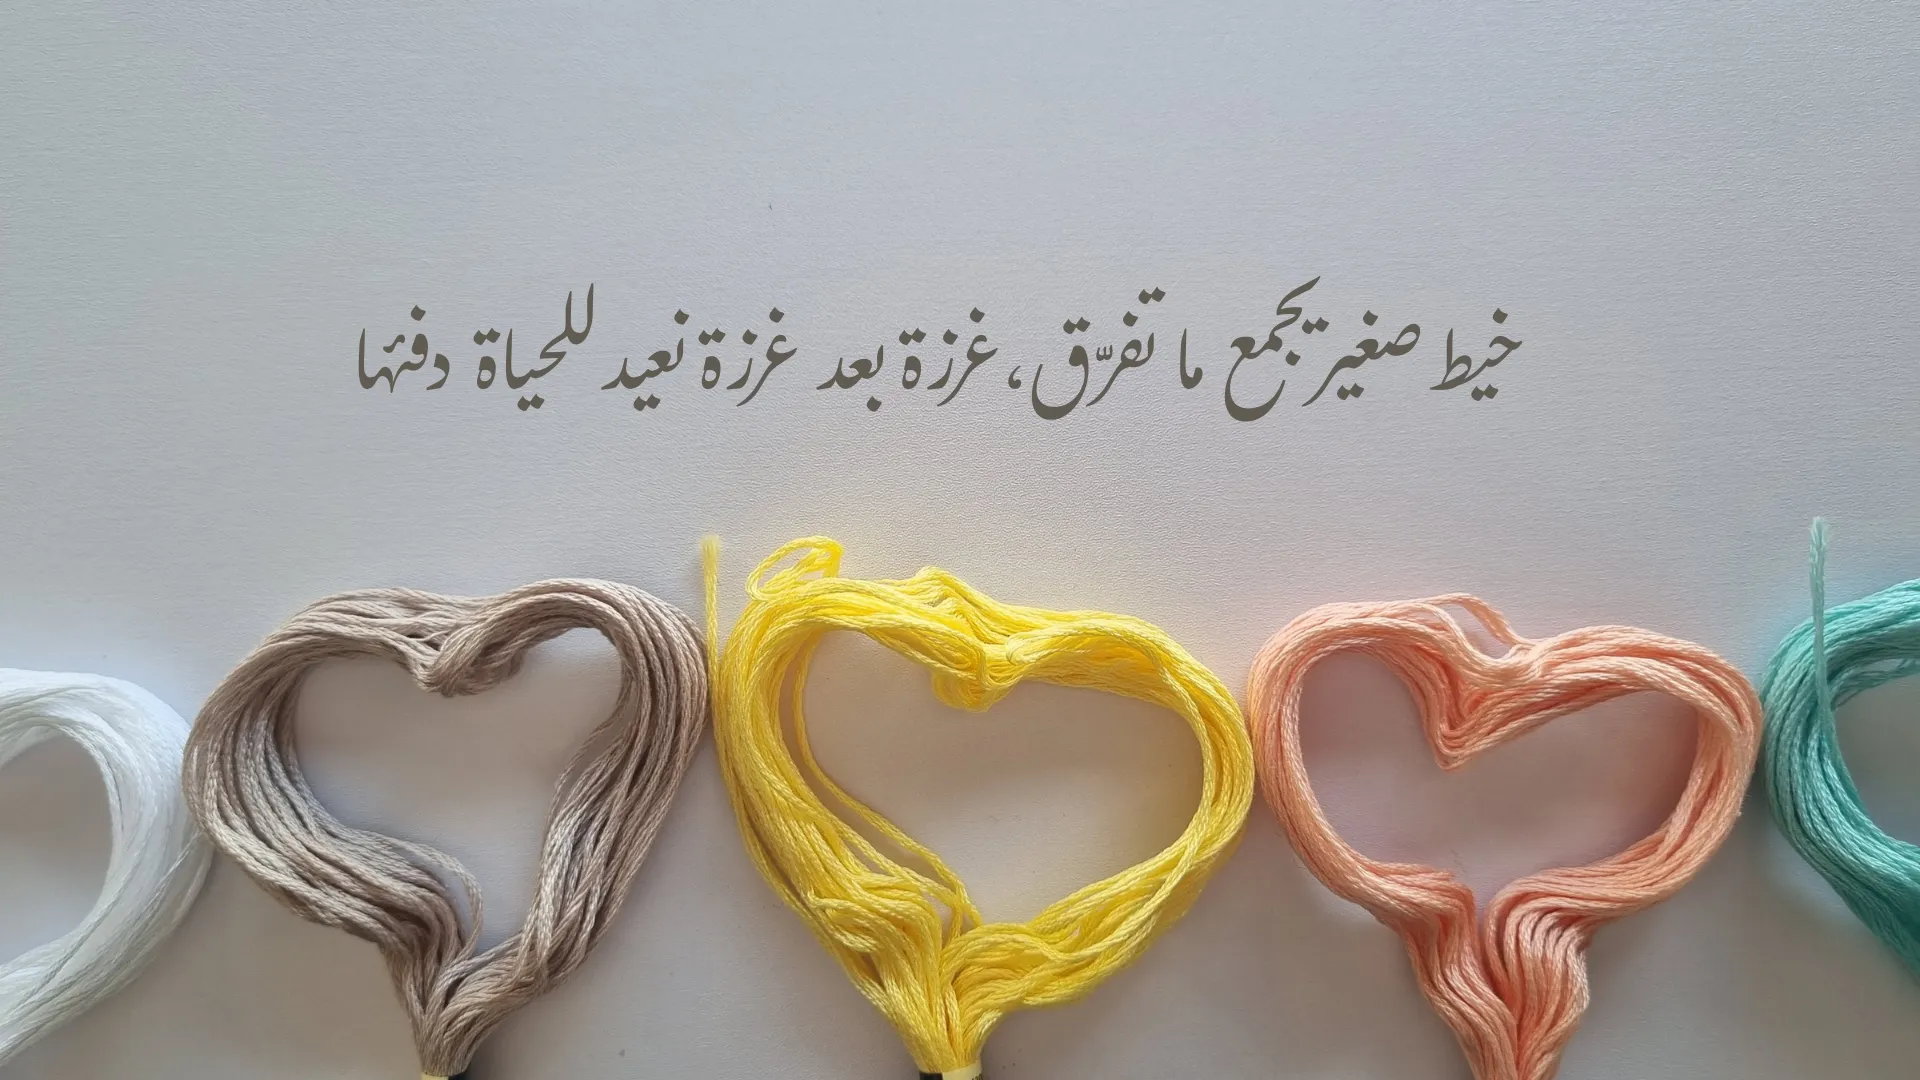 خيط صغير يجمع ما تفرّق، غزة بعد غزة نعيد للحياة دفئها